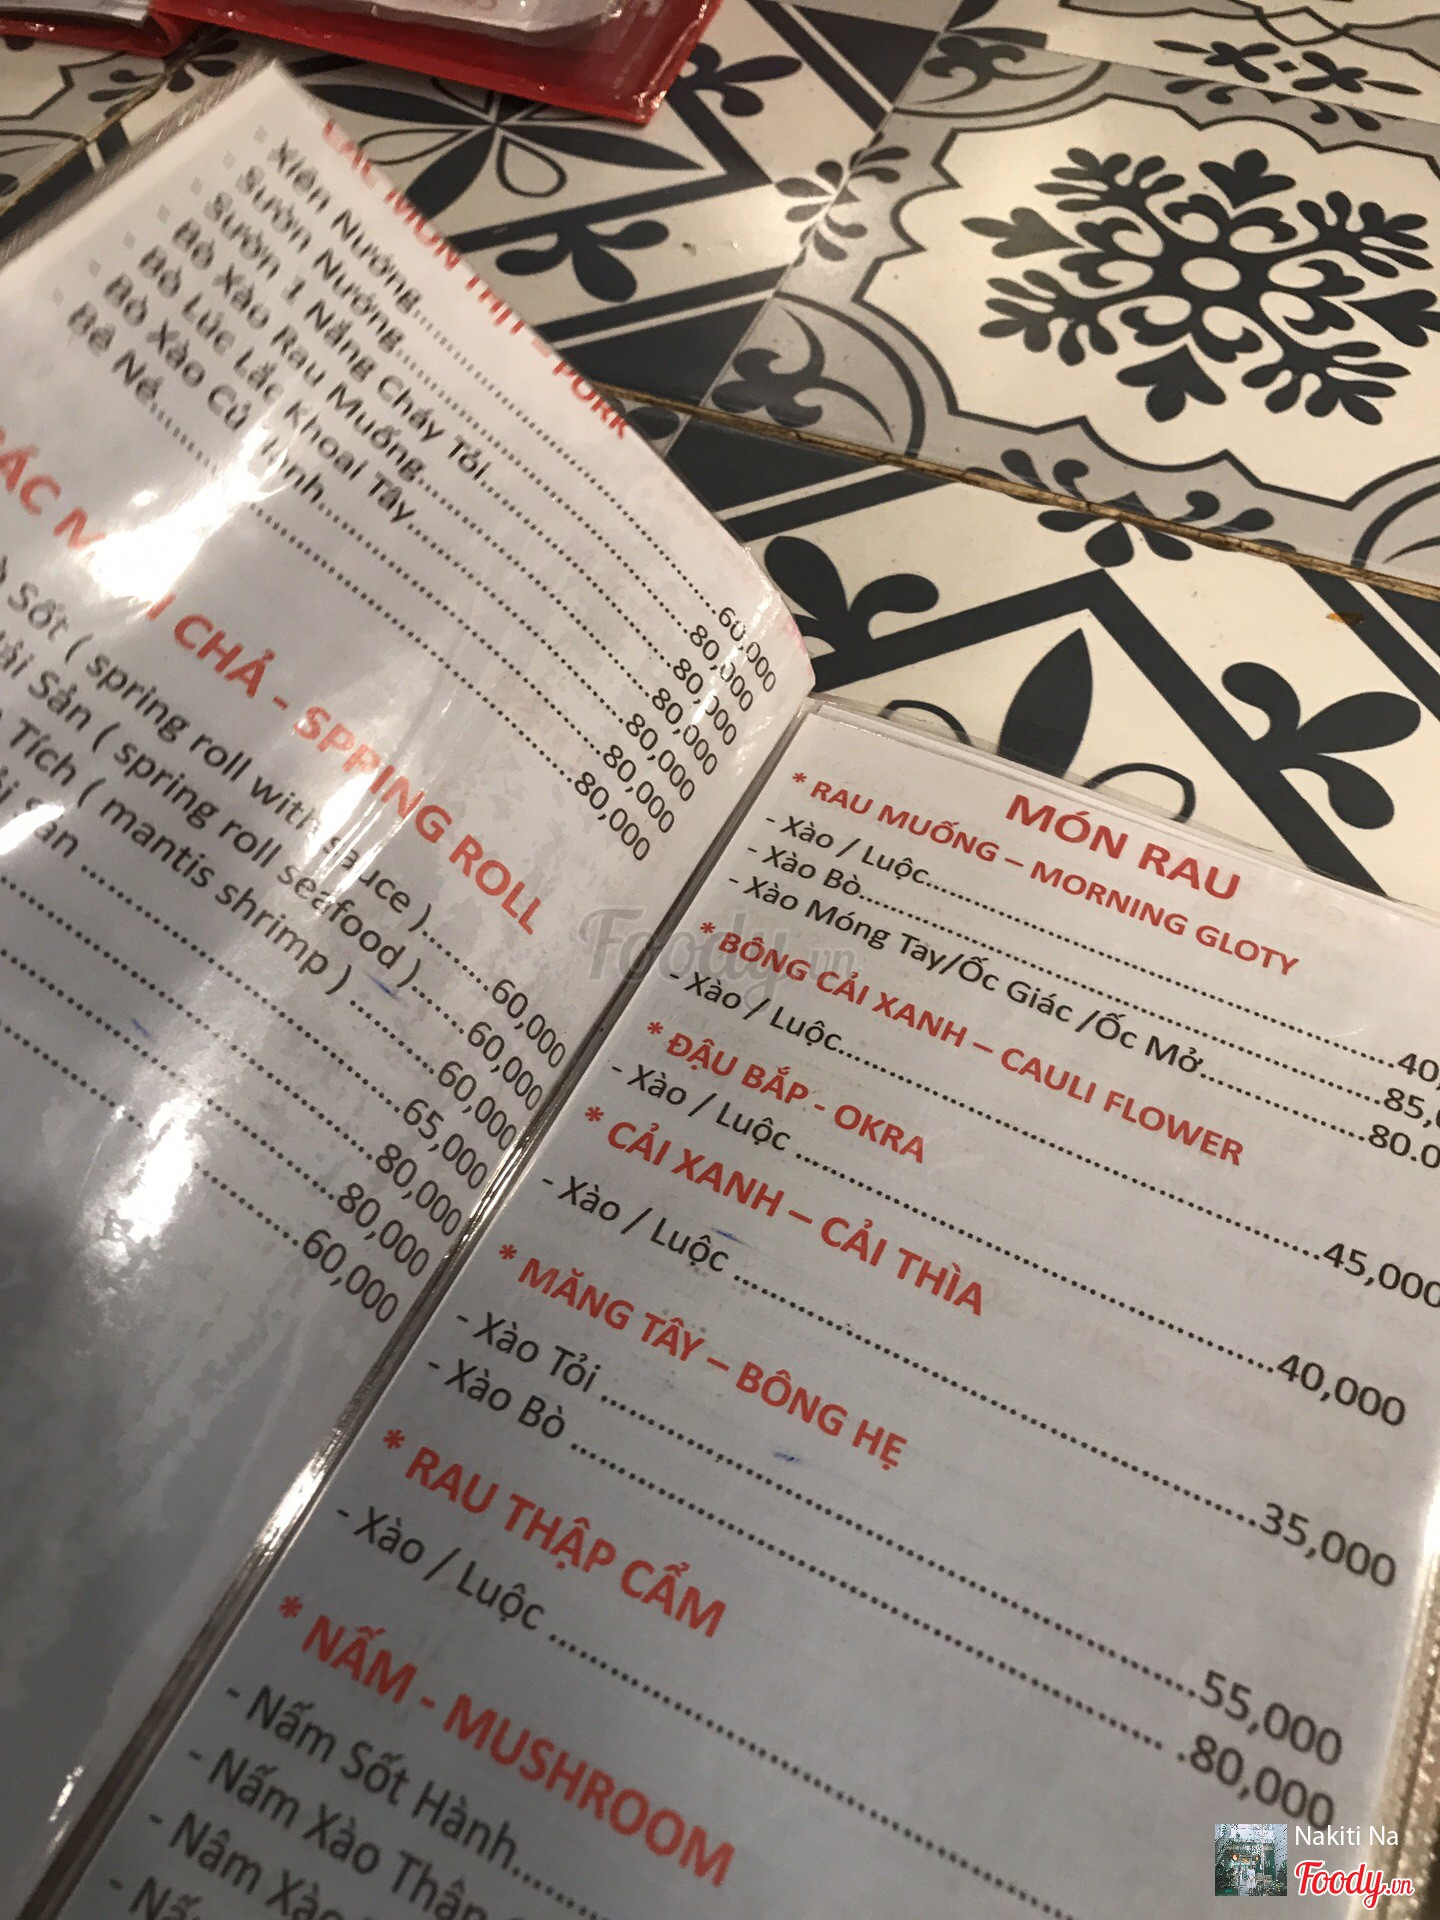 CÁC MÓN THỊT – PORK
Xiên Nướng 60,000
Sườn Nướng 80,000
Sườn 1 Nắng Cháy Tỏi 80,000
Bò Xào Rau Muống 80,000
Bò Lúc Lắc Khoai Tây 80,000
Bò Xào Củ Hành 80,000
Bê Né 80,000
CHẢ - SPPING ROLL
Sốt ( spring roll with sauce ) 60,000
Sản ( spring roll seafood ) 60,000
Tích ( mantis shrimp ) 60,000
65,000
80,000
80,000
60,000
MÓN RAU
* RAU MUỐNG – MORNING GLOTY
- Xào / Luộc 40,
- Xào Bò 85,
- Xào Móng Tay/Ốc Giác /Ốc Mở 80.0
* BÔNG CẢI XANH – CAULI FLOWER
- Xào / Luộc 45,000
* ĐẬU BẮP - OKRA
- Xào / Luộc 40,000
* CẢI XANH – CẢI THÌA
- Xào / Luộc 35,000
* MĂNG TÂY – BÔNG HẸ
- Xào Tỏi 55,000
- Xào Bò 80,000
* RAU THẬP CẨM
- Xào / Luộc
* NẤM - MUSHROOM
- Nấm Sốt Hành
- Nấm Xào Thập
- Nấm Xào
Foody.vn
Nakiti Na
Foody.vn